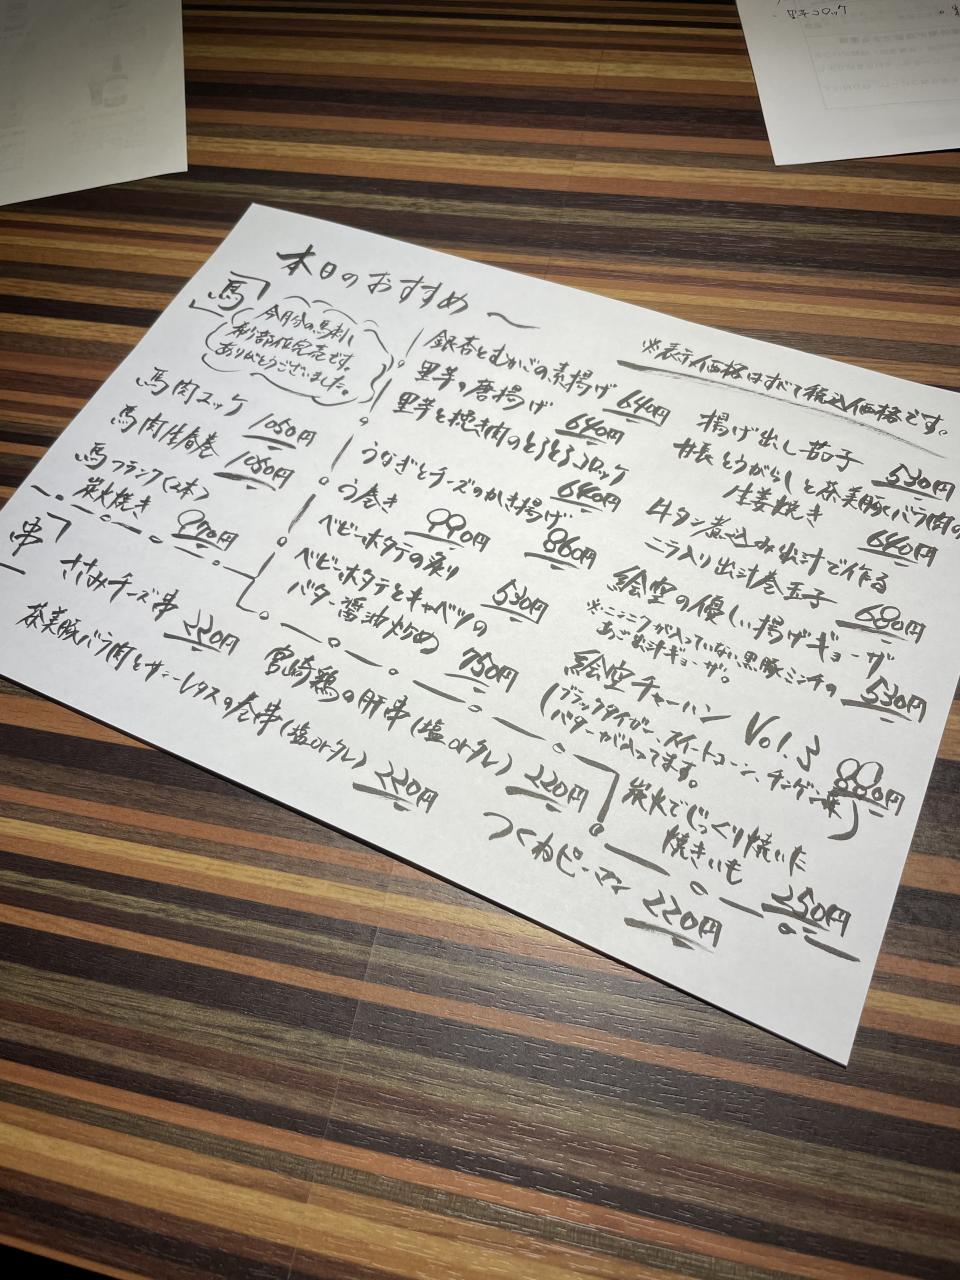 里芋コロッケ
本日のおすすめ〜
※表示価格はすべて税込価格です。
馬
今月分の馬刺し
希少部位完売です。
ありがとうございました。
馬肉ユッケ 1050円
馬肉生春巻 1050円
馬フランク(2本)
炭火焼き 970円
銀杏とむかごの素揚げ 640円
里芋の唐揚げ 640円
里芋と挽き肉のとろとろコロッケ 640円
うなぎとチーズのかき揚げ 860円
う巻き 990円
ベビーホタテの炙り 530円
ベビーホタテとキャベツの
バター醤油炒め 750円
揚げ出し茄子 530円
甘長とうがらしと茶美豚バラ肉の
生姜焼き 640円
牛タン煮込み出汁で作る
ニラ入り出汁巻玉子 680円
絵空の優しい揚げギョーザ 530円
※ニンニクが入っていない黒豚ミンチの
あご出汁ギョーザ。
絵空チャーハン Vol.3 880円
(ブラックタイガー、スイートコーン、チンゲン菜
バターが入ってます。)
炭火でじっくり焼いた
焼きいも 250円
串
ささみチーズ串 220円
茶美豚バラ肉とサニーレタスの巻串(塩orタレ) 220円
宮崎鶏の肝串(塩orタレ) 220円
つくねピーマン 220円